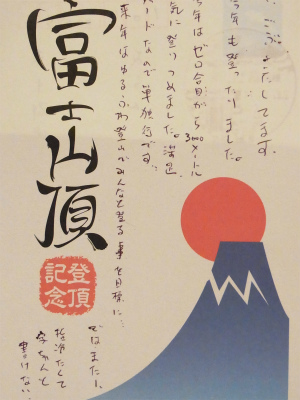 ごぶさたしてます。
今年も登ったりました。
今年はゼロ合目から メートル
気に登りつめました。満足
ハードなので単独行です。
来年はゆるふわ登山でみんなと登る事を目標に…
ではまたー、
指冷たくて
字ちゃんと
書けない。
富士山頂
登頂
記念